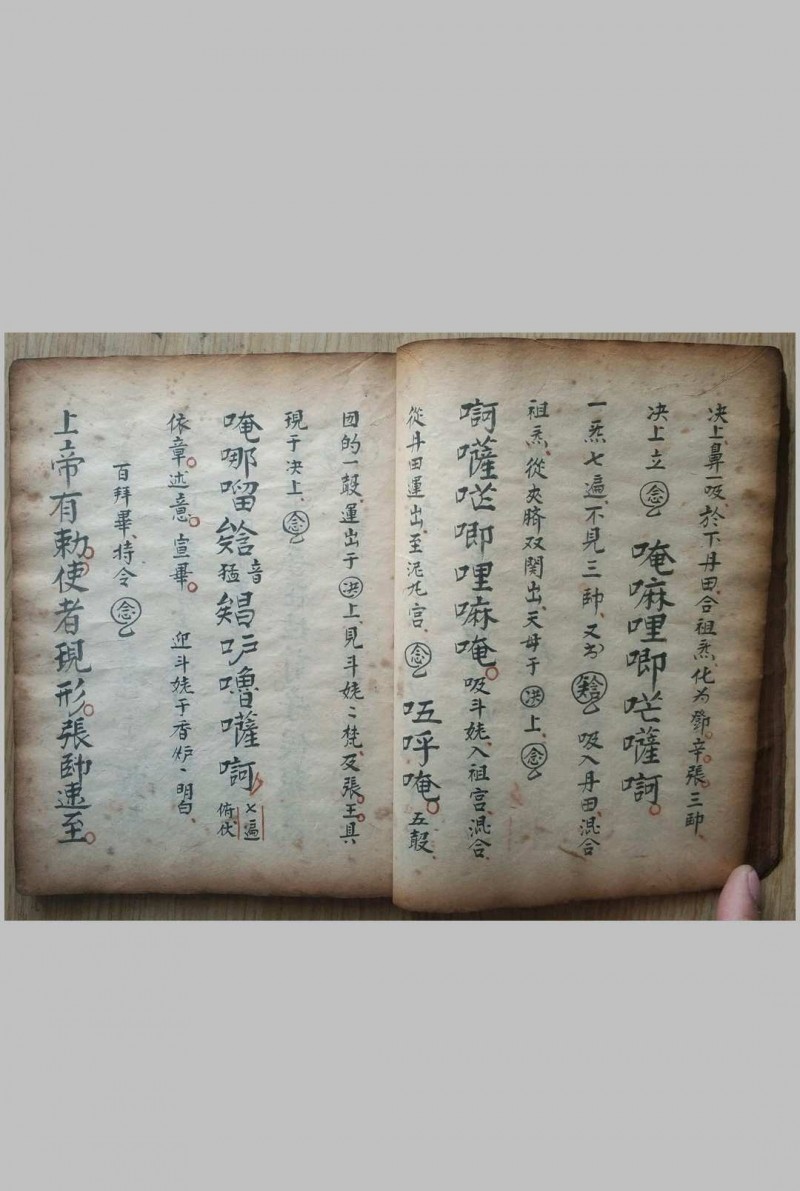 决上鼻一吸於下丹田合祖炁化为鄧辛張三帥
决上立念 唵嘛哩唧吣薩訶
一炁七遍不見三帥又为 吸入丹田混合
祖炁從夾脐双関出天母于决上念
訶薩唧哩嘛唵吸斗姥入祖宫混合
從丹田運出至泥丸宫念 呼唵五殼
团的一殼運出于决上見斗姥〻梵及張王具
現于决上念
唵哪嚕唅猛音吵嚕囉訶七遍俯伏
依章述意宣畢 迎斗姥于香炉丶明白
百拜畢持令念
上帝有勅使者現形張帥速至